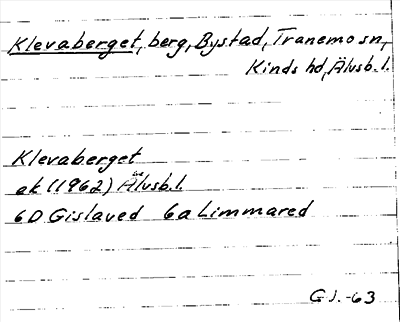 Klevaberget, berg, Bystad, Tranemo sn,
Kinds hd, Älvsb. l.
Klevaberget
ek (1962) Älvsb. l.
6D Gislaved 6a Limmared
G J. -63